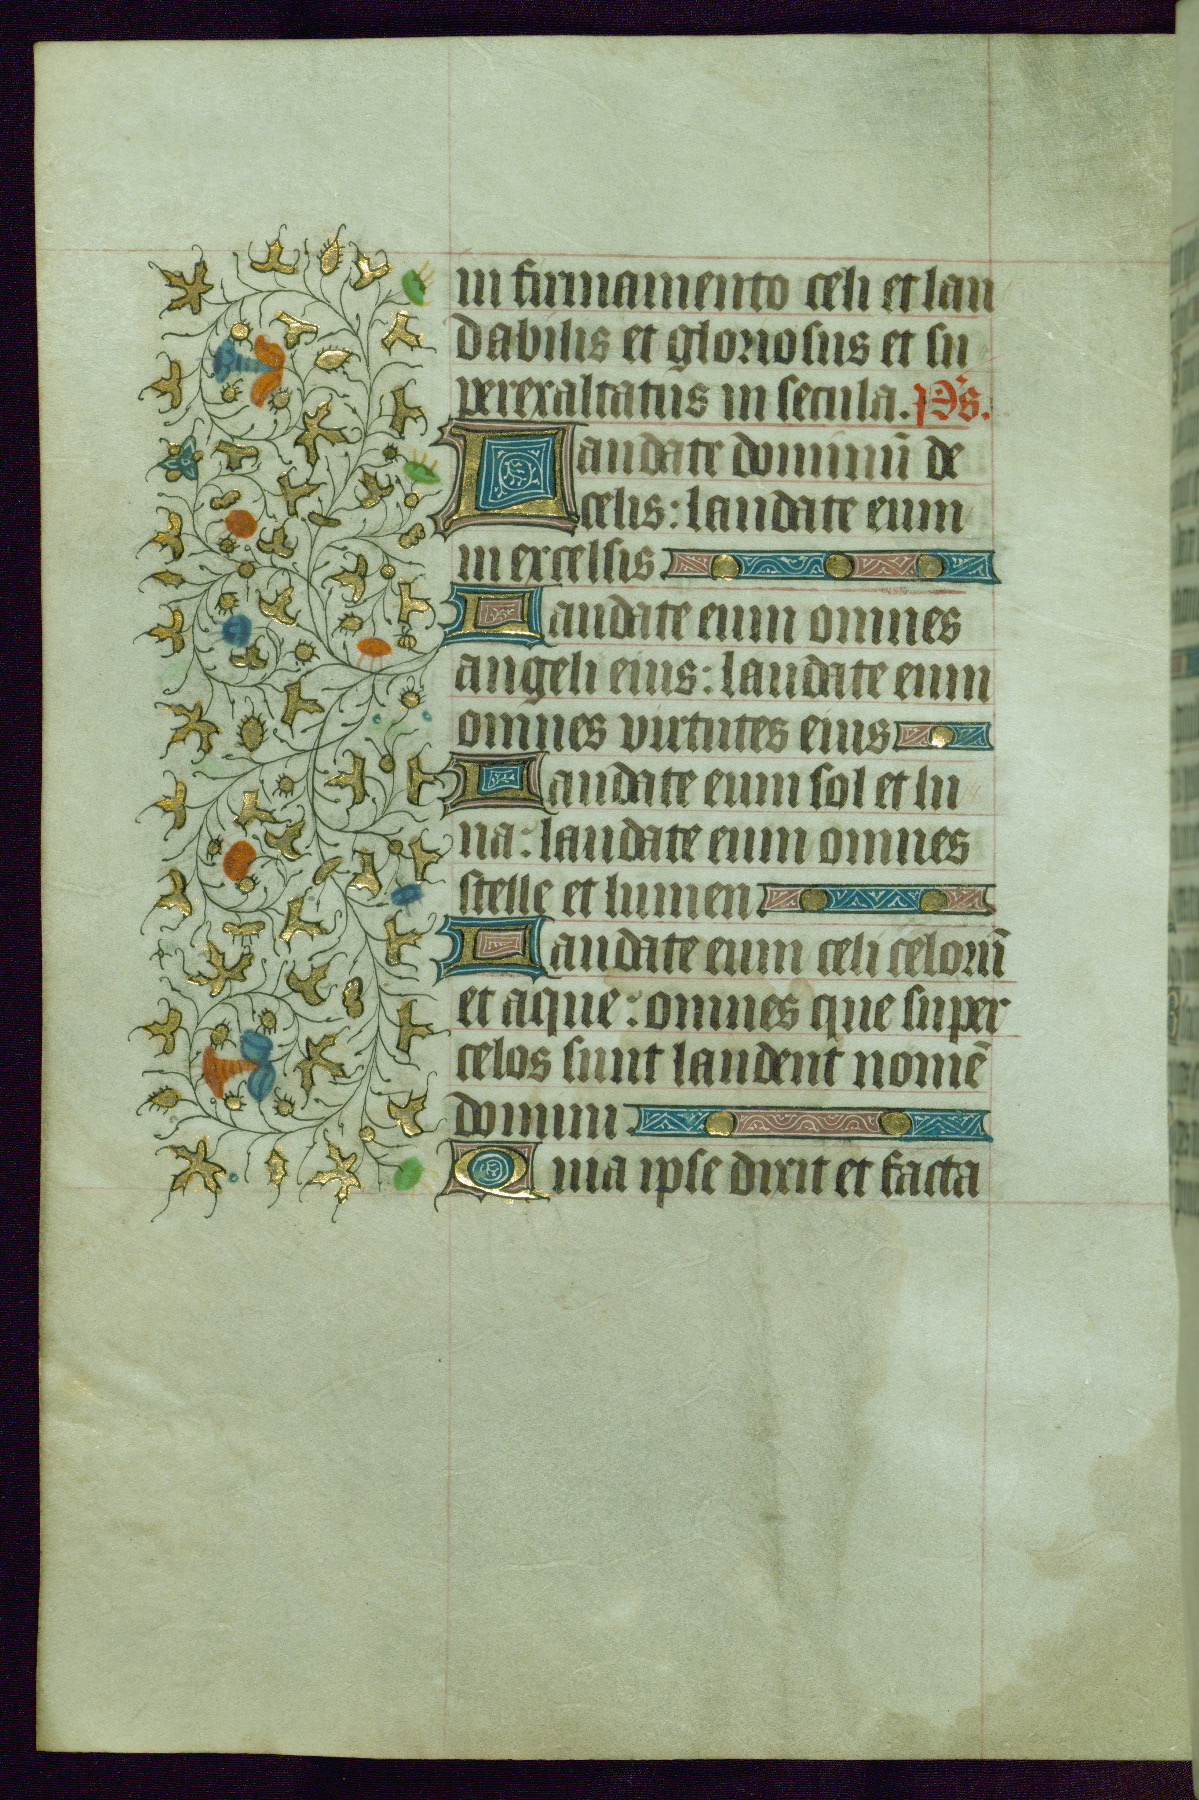 in firmamento celi et lau
dabilis et gloriosus et su
perexaltatus in secula. p̄s.
Laudate dominū de
celis: laudate eum
in excelsis
Laudate eum omnes
angeli eius: laudate eum
omnes virtutes eius
Laudate eum sol et lu
na: laudate eum omnes
stelle et lumen
Laudate eum celi celorū
et aque: omnes que super
celos sunt laudent nomē
domini
Quia ipse dixit et facta